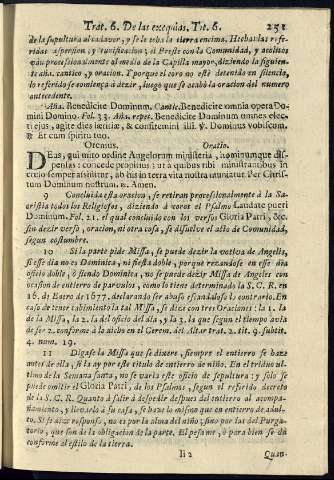 Trat. 6. De las exequias, Tit. 6. 251
de la sepultura al cadaver, y se le echa la tierra encima. Hechas las refe-
ridas aspersion, y turificacion; el Preste con la Comunidad, y acolitos
van procesionalmente al medio de la Capilla mayor, diziendo la siguien-
te aña. cantico, y oracion. Y porque el coro no esté detenido en silencio,
lo referido se comiença à dezir, luego que se acabò la oracion del numero
antecedente.
Aña. Benedicite Dominum. Cantic. Benedicite omnia opera Do-
mini Domino. Fol. 33. Aña. repet. Benedicite Dominum omnes elec-
ti ejus, agite dies lætitiæ, & confitemini illi. ℣. Dominus vobiscum.
℟. Et cum spiritu tuo.
Oremus. Oratio.
DEus, qui miro ordine Angelorum ministeria, hominumque dis-
pensas: concede propitius; ut à quibus tibi ministrantibus in
cœlo semper assistitur, ab his in terra vita nostra muniatur. Per Chris-
tum Dominum nostrum. ℟. Amen.
9 Concluida esta oracion, se retiran procesionalmente à la Sa-
cristia todos los Religiosos, diziendo à coros el Psalmo Laudate pueri
Dominum. Fol. 21. el qual concluido con los versos Gloria Patri, &c.
sin dezir verso, oracion, ni otra cosa, se disuelve el acto de Comunidad,
segun costumbre.
10 Si la parte pide Missa, se puede dezir la votiva de Angeles,
si esse dia no es Dominica, ni fiesta doble, porque rezandose en esse dia
oficio doble, ò siendo Dominica, no se puede dezir Missa de Angeles con
ocasion de entierro de parvulos, como lo tiene determinado la S. C. R. en
16. de Enero de 1677. declarando ser abuso el hazerlo contrario. En
caso de tener cabimiento la tal Missa, se dize con tres Oraciones: la 1. la
de la Missa, la 2. la del oficio del dia, y la 3. la que segun el tiempo avia
de ser 2. conforme à lo dicho en el Cerem. del Altar trat. 2. tit. 9. subtit.
4. num. 19.
11 Digase la Missa que se dixere, siempre el entierro se haze
antes de ella, si la ay por este titulo de entierro de niño. En el triduo ul-
timo de Semana santa, no se varìa este oficio de sepultura; y solo se
puede omitir el Gloria Patri, de los Psalmos, segun el referido decreto
de la S. C. R. Quanto à salir à despedir despues del entierro al acompa-
ñamiento, y llevarlo à su casa, se haze lo mismo que en entierro de adul-
to. Si se dize responso, no es por la alma del niño; sino por las del Purga-
torio, que son de la obligacion de la parte. El pesame, ò para bien se dà
conforme al estilo de la tierra.
Ii 2 Quan-